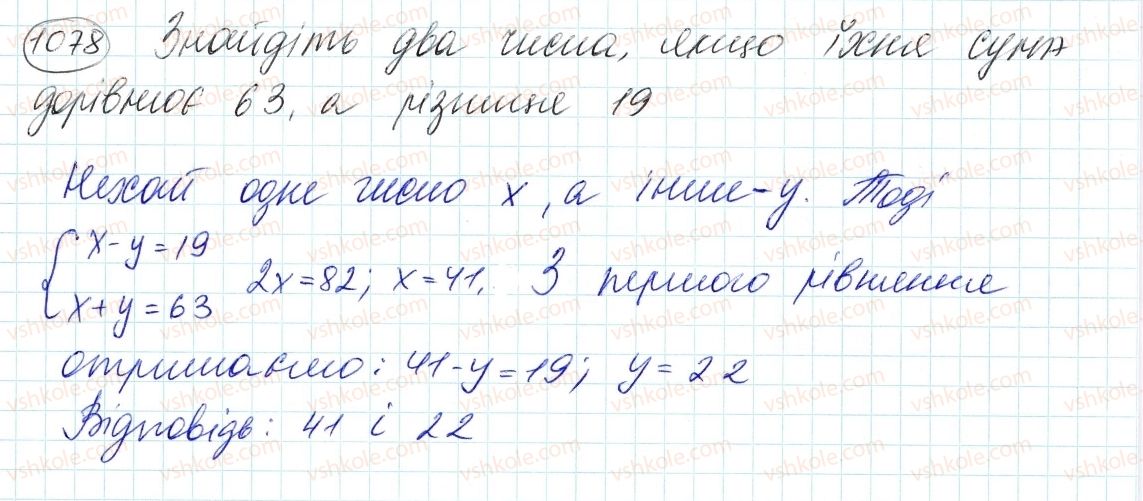 1078 Знайдіть два числа, якщо їхня сума
дорівнює 63, а різниця 19
Нехай одне число x, а інше - y. Тоді
{ x - y = 19
x + y = 63 2x = 82; x = 41. З першого рівняння
отримаємо: 41 - y = 19; y = 22
Відповідь: 41 і 22